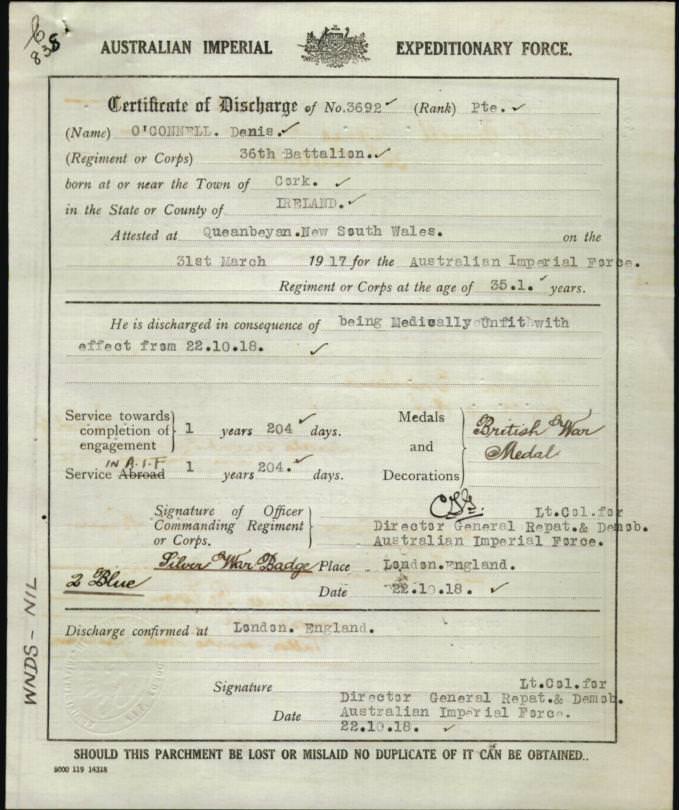 838
AUSTRALIAN IMPERIAL EXPEDITIONARY FORCE.
Certificate of Discharge of No.3692 (Rank) Pte.
(Name) O'CONNELL. Denis.
(Regiment or Corps) 36th Battalion.
born at or near the Town of Cork.
in the State or County of IRELAND.
Attested at Queanbeyan.New South Wales. on the
31st March 1917 for the Australian Imperial Force.
Regiment or Corps at the age of 35.1. years.
He is discharged in consequence of being Medically Unfit with
effect from 22.10.18.
Service towards completion of engagement } 1 years 204 days.
Service Abroad IN A.I.F 1 years 204. days.
Medals and Decorations } British War Medal
Signature of Officer Commanding Regiment or Corps. } Lt.Col.for
Director General Repat.& Demob.
Australian Imperial Force.
Silver War Badge Place London.England.
2 Blue Date 22.10.18.
Discharge confirmed at London. England.
WNDS - NIL
Signature Lt.Col.for
Director General Repat.& Demob.
Date Australian Imperial Force.
22.10.18.
SHOULD THIS PARCHMENT BE LOST OR MISLAID NO DUPLICATE OF IT CAN BE OBTAINED..
9000 119 14318